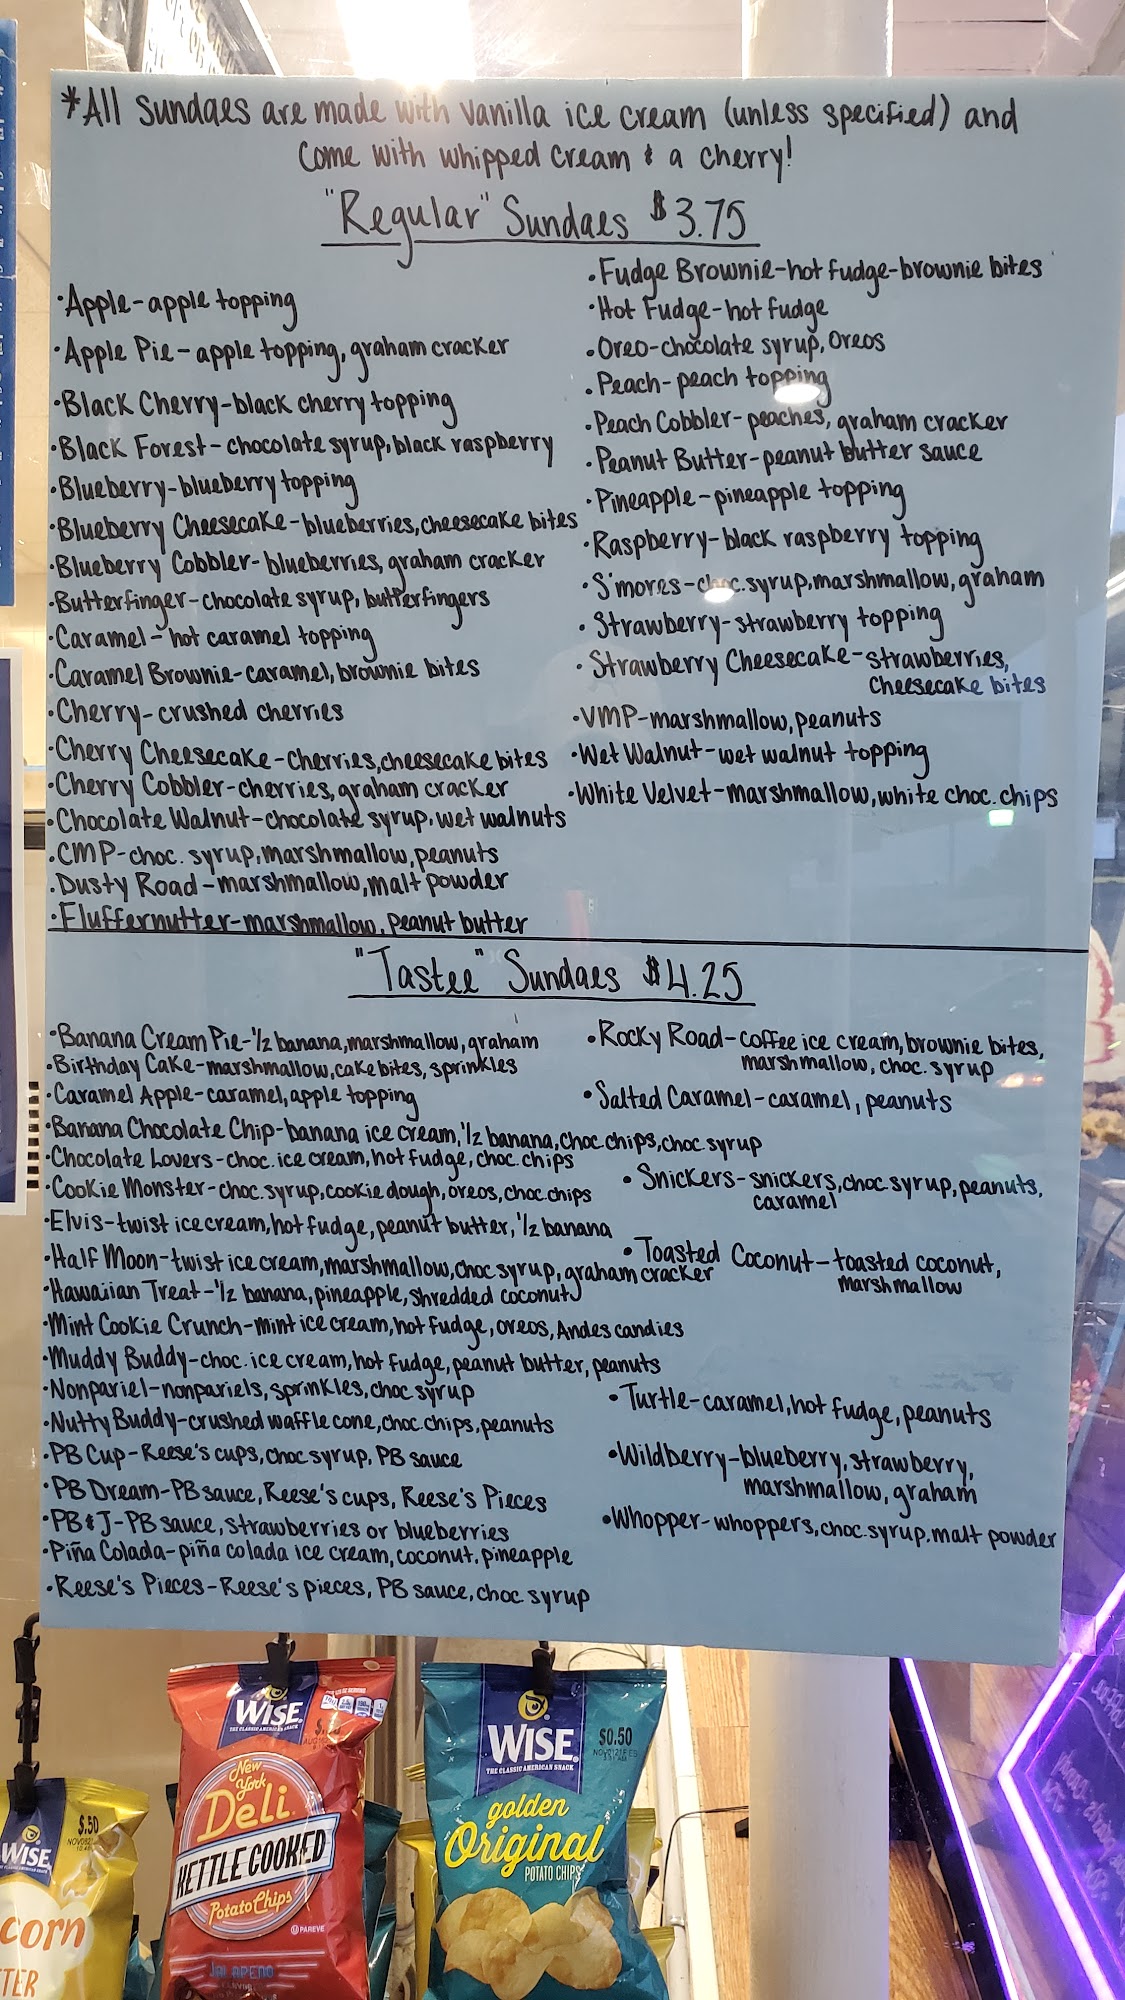 *All Sundaes are made with vanilla ice cream (unless specified) and
come with whipped cream & a cherry!
"Regular" Sundaes $3.75
•Apple-apple topping
•Apple Pie-apple topping, graham cracker
•Black Cherry-black cherry topping
•Black Forest-chocolate syrup, black raspberry
•Blueberry-blueberry topping
•Blueberry Cheesecake-blueberries, cheesecake bites
•Blueberry Cobbler-blueberries, graham cracker
•Butterfinger-chocolate syrup, butterfingers
•Caramel-hot caramel topping
•Caramel Brownie-caramel, brownie bites
•Cherry-crushed cherries
•Cherry Cheesecake-cherries, cheesecake bites
•Cherry Cobbler-cherries, graham cracker
•Chocolate Walnut-chocolate syrup, wet walnuts
•CMP-choc. syrup, marshmallow, peanuts
•Dusty Road-marshmallow, malt powder
•Fluffernutter-marshmallow, peanut butter
•Fudge Brownie-hot fudge-brownie bites
•Hot Fudge-hot fudge
•Oreo-chocolate syrup, Oreos
•Peach-peach topping
•Peach Cobbler-peaches, graham cracker
•Peanut Butter-peanut butter sauce
•Pineapple-pineapple topping
•Raspberry-black raspberry topping
•S'mores-choc. syrup, marshmallow, graham
•Strawberry-strawberry topping
•Strawberry Cheesecake-strawberries,
cheesecake bites
•VMP-marshmallow, peanuts
•Wet Walnut-wet walnut topping
•White Velvet-marshmallow, white choc. chips
"Tastee" Sundaes $4.25
•Banana Cream Pie-1/2 banana, marshmallow, graham
•Birthday Cake-marshmallow, cake bites, sprinkles
•Caramel Apple-caramel, apple topping
•Banana Chocolate Chip-banana ice cream, 1/2 banana, choc chips, choc syrup
•Chocolate Lovers-choc. ice cream, hot fudge, choc. chips
•Cookie Monster-choc. syrup, cookie dough, oreos, choc chips
•Elvis-twist ice cream, hot fudge, peanut butter, 1/2 banana
•Half Moon-twist ice cream, marshmallow, choc syrup, graham cracker
•Hawaiian Treat-1/2 banana, pineapple, shredded coconut
•Mint Cookie Crunch-mint ice cream, hot fudge, oreos, Andes candies
•Muddy Buddy-choc. ice cream, hot fudge, peanut butter, peanuts
•Nonpariel-nonpariels, sprinkles, choc syrup
•Nutty Buddy-crushed waffle cone, choc chips, peanuts
•PB Cup-Reese's cups, choc syrup, PB sauce
•PB Dream-PB sauce, Reese's cups, Reese's Pieces
•PB & J-PB sauce, strawberries or blueberries
•Piña Colada-piña colada ice cream, coconut, pineapple
•Reese's Pieces-Reese's pieces, PB sauce, choc syrup
•Rocky Road-coffee ice cream, brownie bites,
marshmallow, choc. syrup
•Salted Caramel-caramel, peanuts
•Snickers-snickers, choc syrup, peanuts,
caramel
•Toasted Coconut-toasted coconut,
marshmallow
•Turtle-caramel, hot fudge, peanuts
•Wildberry-blueberry, strawberry,
marshmallow, graham
•Whopper-whoppers, choc. syrup, malt powder
WISE
THE CLASSIC AMERICAN SNACK
New
York
Deli
KETTLE COOKED
Potato Chips
PAREVE
JALAPENO
WISE
THE CLASSIC AMERICAN SNACK
$0.50
golden
Original
POTATO CHIPS
$.50
WISE
corn
TER